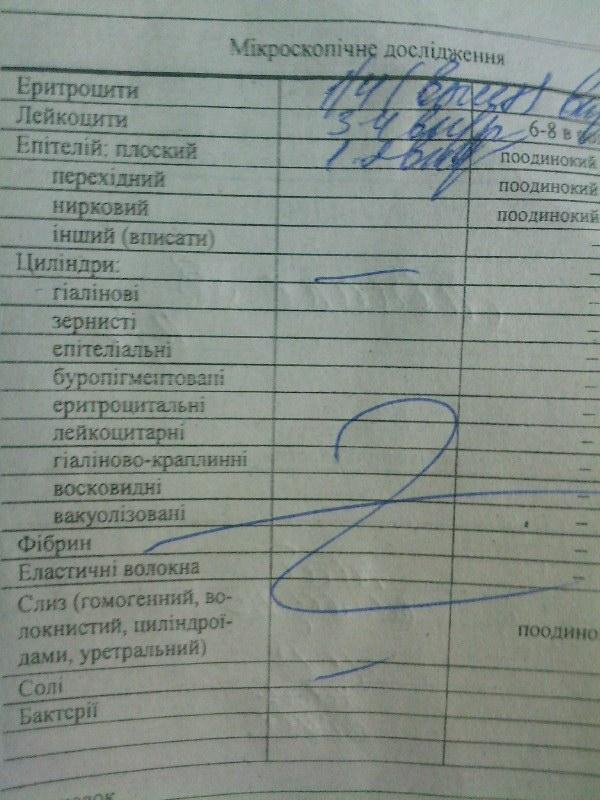 Мікроскопічне дослідження
Еритроцити
Лейкоцити 3-4 6-8 в
Епітелій: плоский 1-2 поодинокий
перехідний поодинокий
нирковий поодинокий
інший (вписати) –
Циліндри:
гіалінові –
зернисті –
епітеліальні –
буропігментовані –
еритроцитальні –
лейкоцитарні –
гіаліново-краплинні –
восковидні –
вакуолізовані –
Фібрин –
Еластичні волокна –
Слиз (гомогенний, во-
локнистий, циліндрої-
дами, уретральний) поодино
Солі
Бактерії